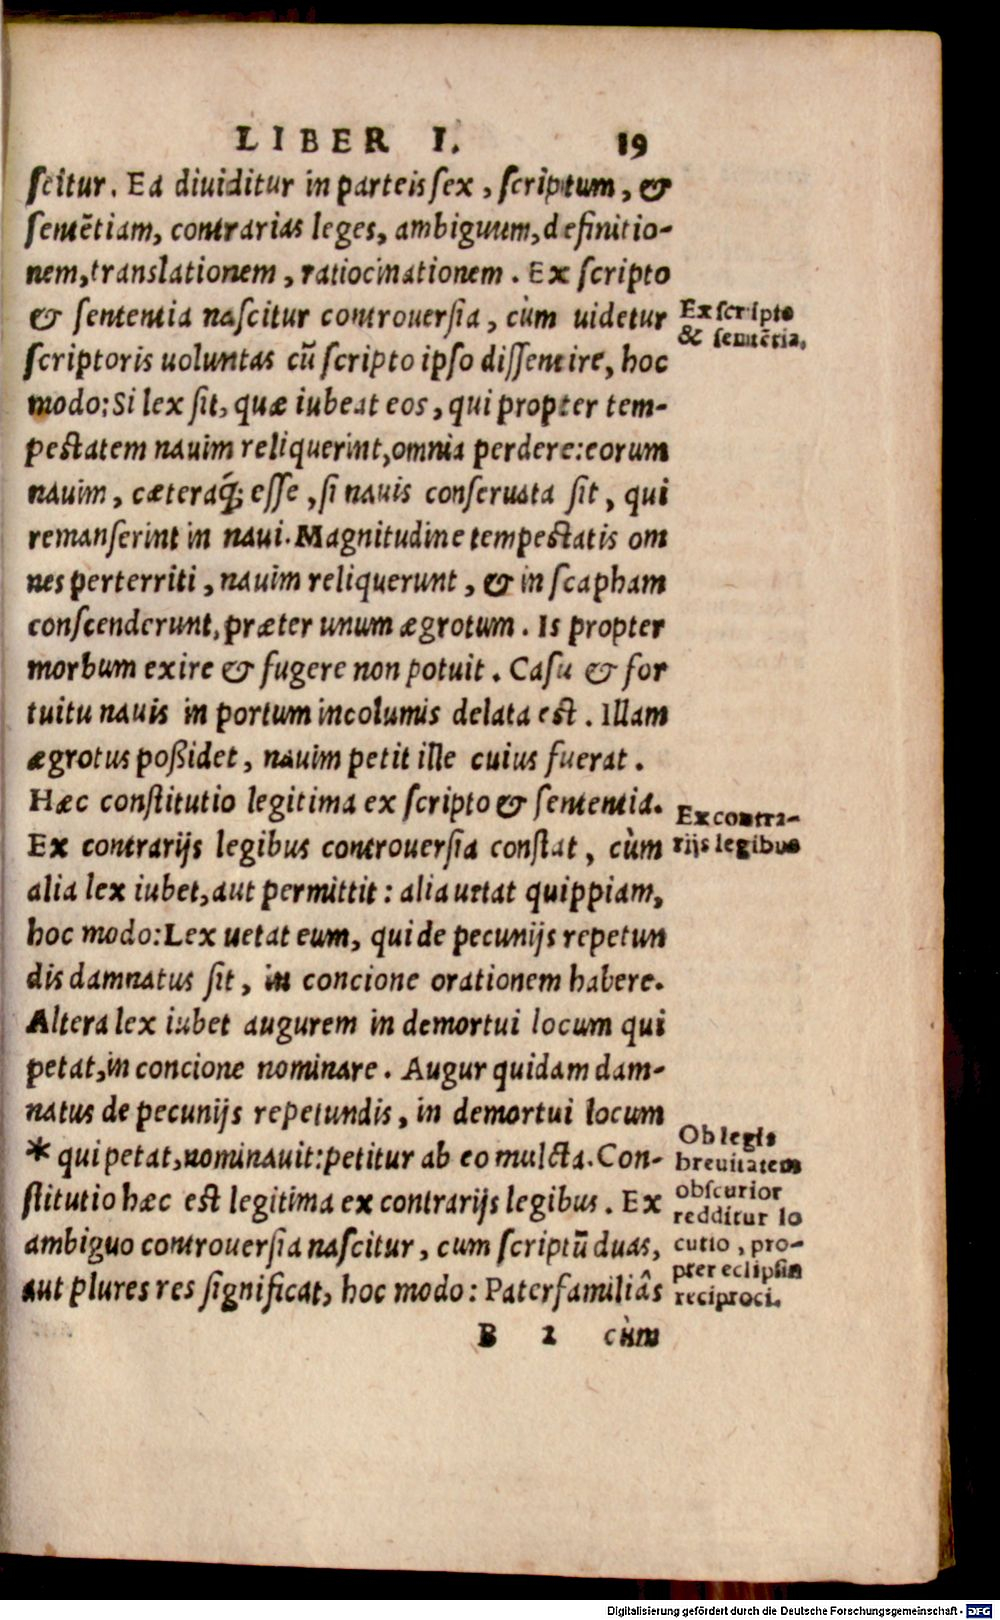 LIBER I. 19
ſcitur. Ea diuiditur in parteis ſex, ſcriptum, &
ſentẽtiam, contrarias leges, ambiguum, definitio-
nem, translationem, ratiocinationem. Ex ſcripto
& ſententia naſcitur controuerſia, cùm uidetur
ſcriptoris uoluntas cũ ſcripto ipſo diſſentire, hoc
modo: Si lex ſit, quæ iubeat eos, qui propter tem-
peſtatem nauim reliquerint, omnia perdere: eorum
nauim, cæteraq́; eſſe, ſi nauis conſeruata ſit, qui
remanſerint in naui. Magnitudine tempeſtatis om
nes perterriti, nauim reliquerunt, & in ſcapham
conſcenderunt, præter unum ægrotum. Is propter
morbum exire & fugere non potuit. Caſu & for
tuitu nauis in portum incolumis delata eſt. Illam
ægrotus poßidet, nauim petit ille cuius fuerat.
Hæc conſtitutio legitima ex ſcripto & ſententia.
Ex contrarijs legibus controuerſia conſtat, cùm
alia lex iubet, aut permittit: alia uetat quippiam,
hoc modo: Lex uetat eum, qui de pecunijs repetun
dis damnatus ſit, in concione orationem habere.
Altera lex iubet augurem in demortui locum qui
petat, in concione nominare. Augur quidam dam-
natus de pecunijs repetundis, in demortui locum
* qui petat, nominauit: petitur ab eo multa. Con-
ſtitutio hæc eſt legitima ex contrarijs legibus. Ex
ambiguo controuerſia naſcitur, cum ſcriptũ duas,
aut plures res ſignificat, hoc modo: Paterfamiliâs
B 2 cùm
Ex ſcripto
& ſentẽtia.
Ex contra-
rijs legibus
Ob legis
breuitatem
obſcurior
redditur lo
cutio, pro-
pter eclipſin
reciproci.
Digitalisierung gefördert durch die Deutsche Forschungsgemeinschaft - DFG